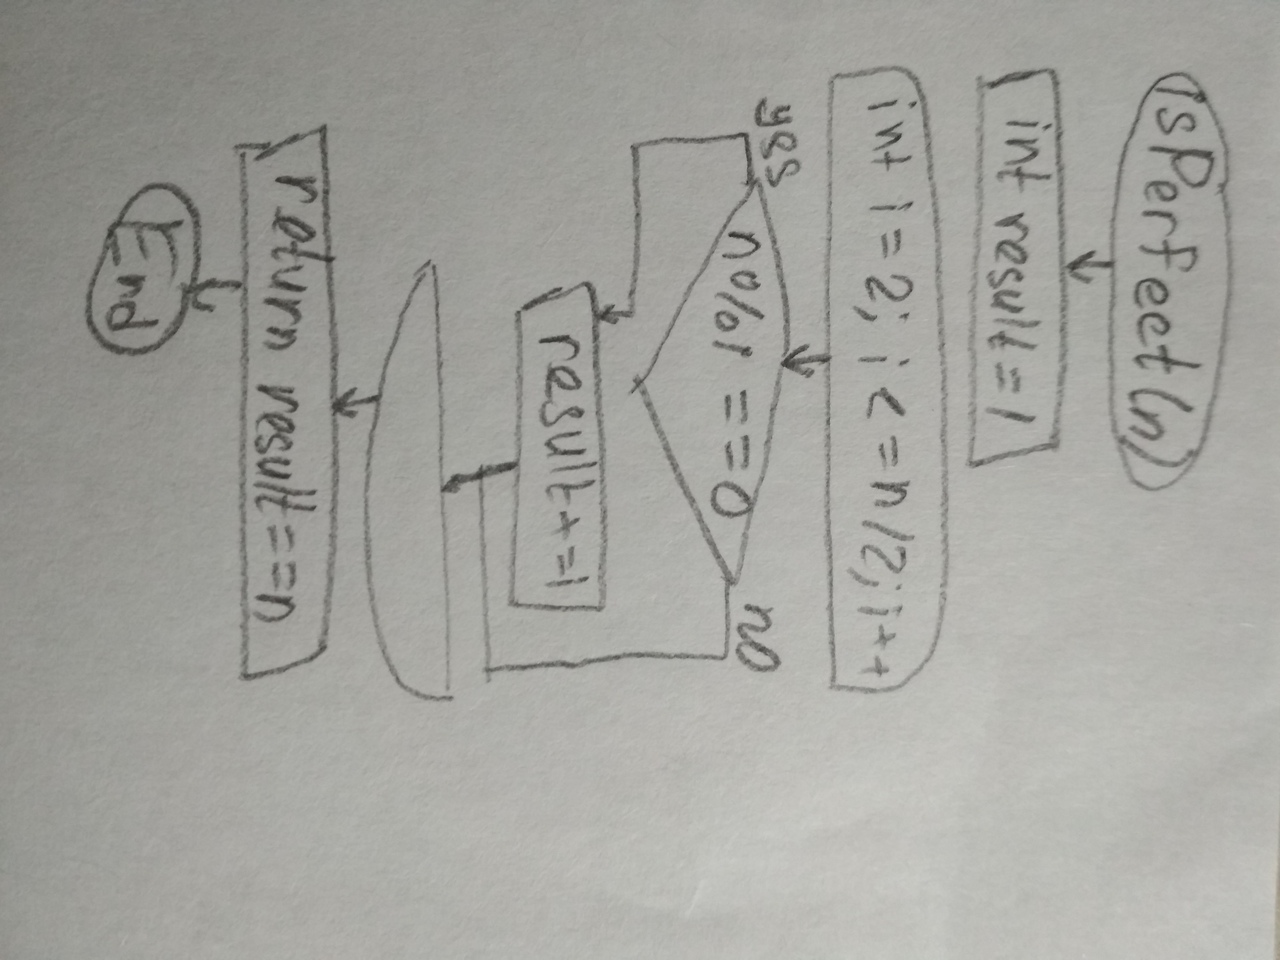 isPerfect(n)
int result=1
int i=2; i<=n/2; i++
yes
n%i==0
no
result+=i
return result==n
End